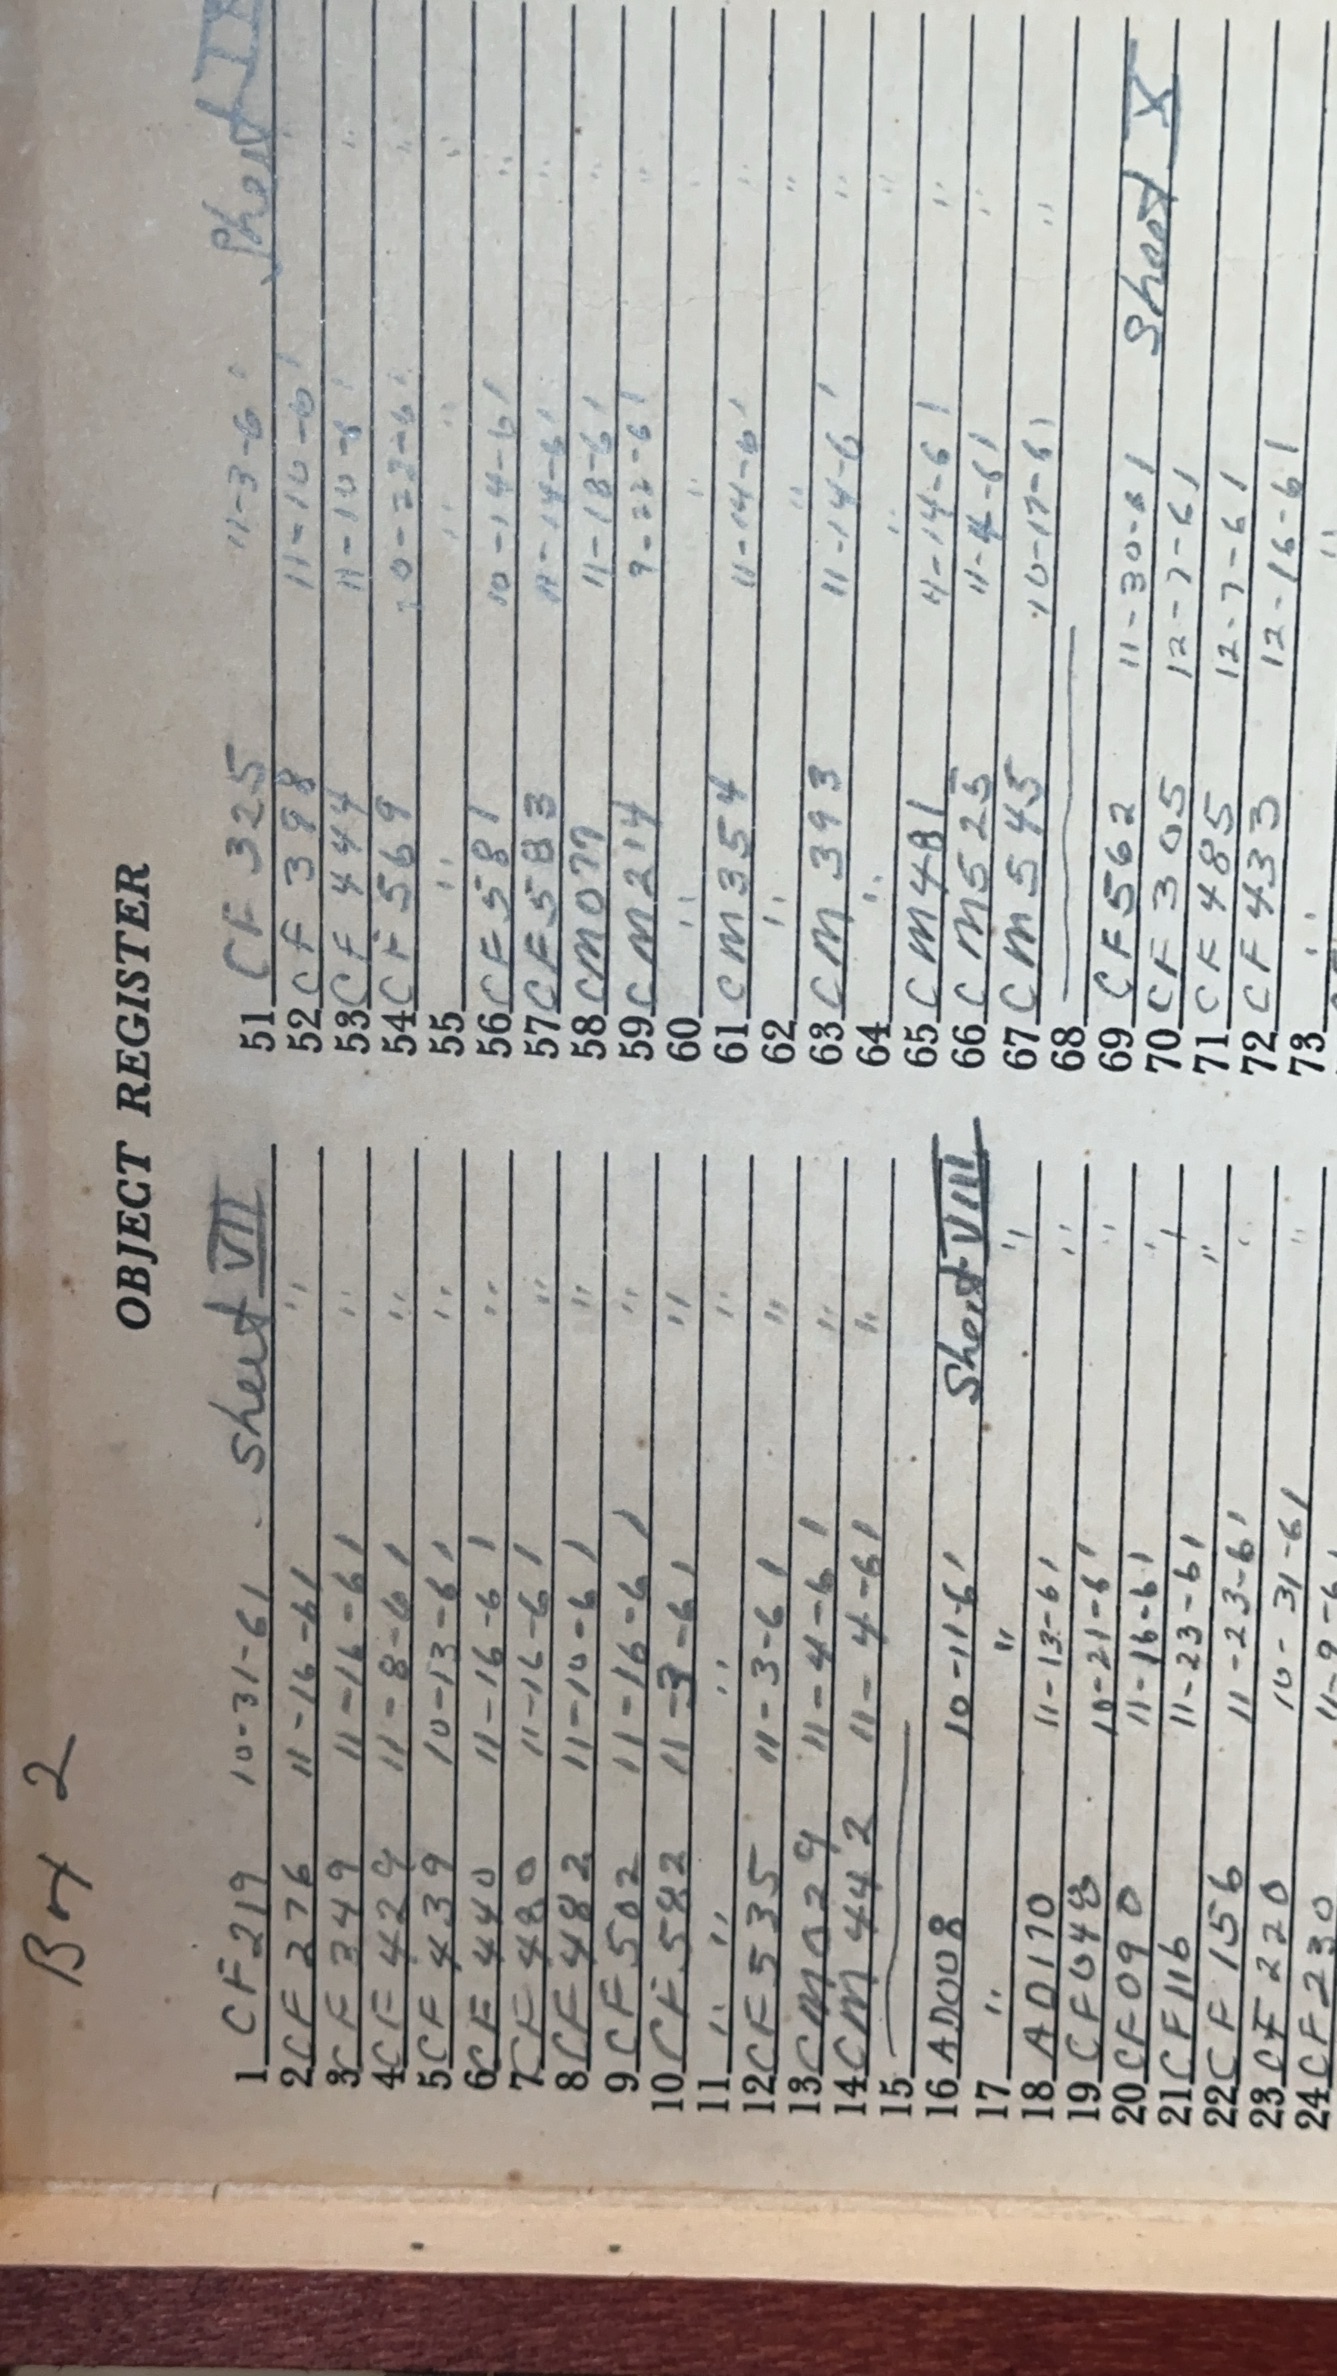 Box 2
OBJECT REGISTER
1 CF 219 10-31-61 Sheet VII
2 CF 276 11-16-61 "
3 CF 349 11-16-61 "
4 CF 429 11-8-61 "
5 CF 439 10-13-61 "
6 CF 440 11-16-61 "
7 CF 480 11-16-61 "
8 CF 482 11-10-61 "
9 CF 502 11-16-61 "
10 CF 582 11-3-61 "
11 " " " "
12 CF 535 11-3-61 "
13 CM 029 11-4-61 "
14 CM 442 11-4-61 "
15
16 AD008 10-11-61 Sheet VIII
17 " " "
18 AD170 11-13-61 "
19 CF 048 10-21-61 "
20 CF 090 11-16-61 "
21 CF 116 11-23-61 "
22 CF 156 11-23-61 "
23 CF 220 10-31-61 "
24 CF 230 11-9-61
51 CF 325 11-3-61 Sheet IX
52 CF 398 11-10-61
53 CF 444 11-10-61 "
54 CF 569 10-23-61 "
55 " " " "
56 CF 581 10-14-61 "
57 CF 583 11-14-61 "
58 CM077 11-18-61 "
59 CM214 9-22-61 "
60 " " "
61 CM354 11-14-61 "
62 " " "
63 CM 393 11-14-61 "
64 " " "
65 CM481 11-14-61 "
66 CM525 11-4-61 "
67 CM 545 10-17-61 "
68
69 CF562 11-30-61 Sheet X
70 CF 305 12-7-61
71 CF 485 12-7-61
72 CF 433 12-16-61
73 " "